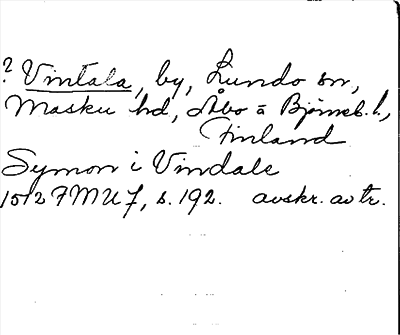 ? Vintala, by, Lundo sn,
Masku hd, Åbo o Björneb. l.,
Finland
Symon i Vindale
1512 FMU 7, s. 192. avskr. av tr.